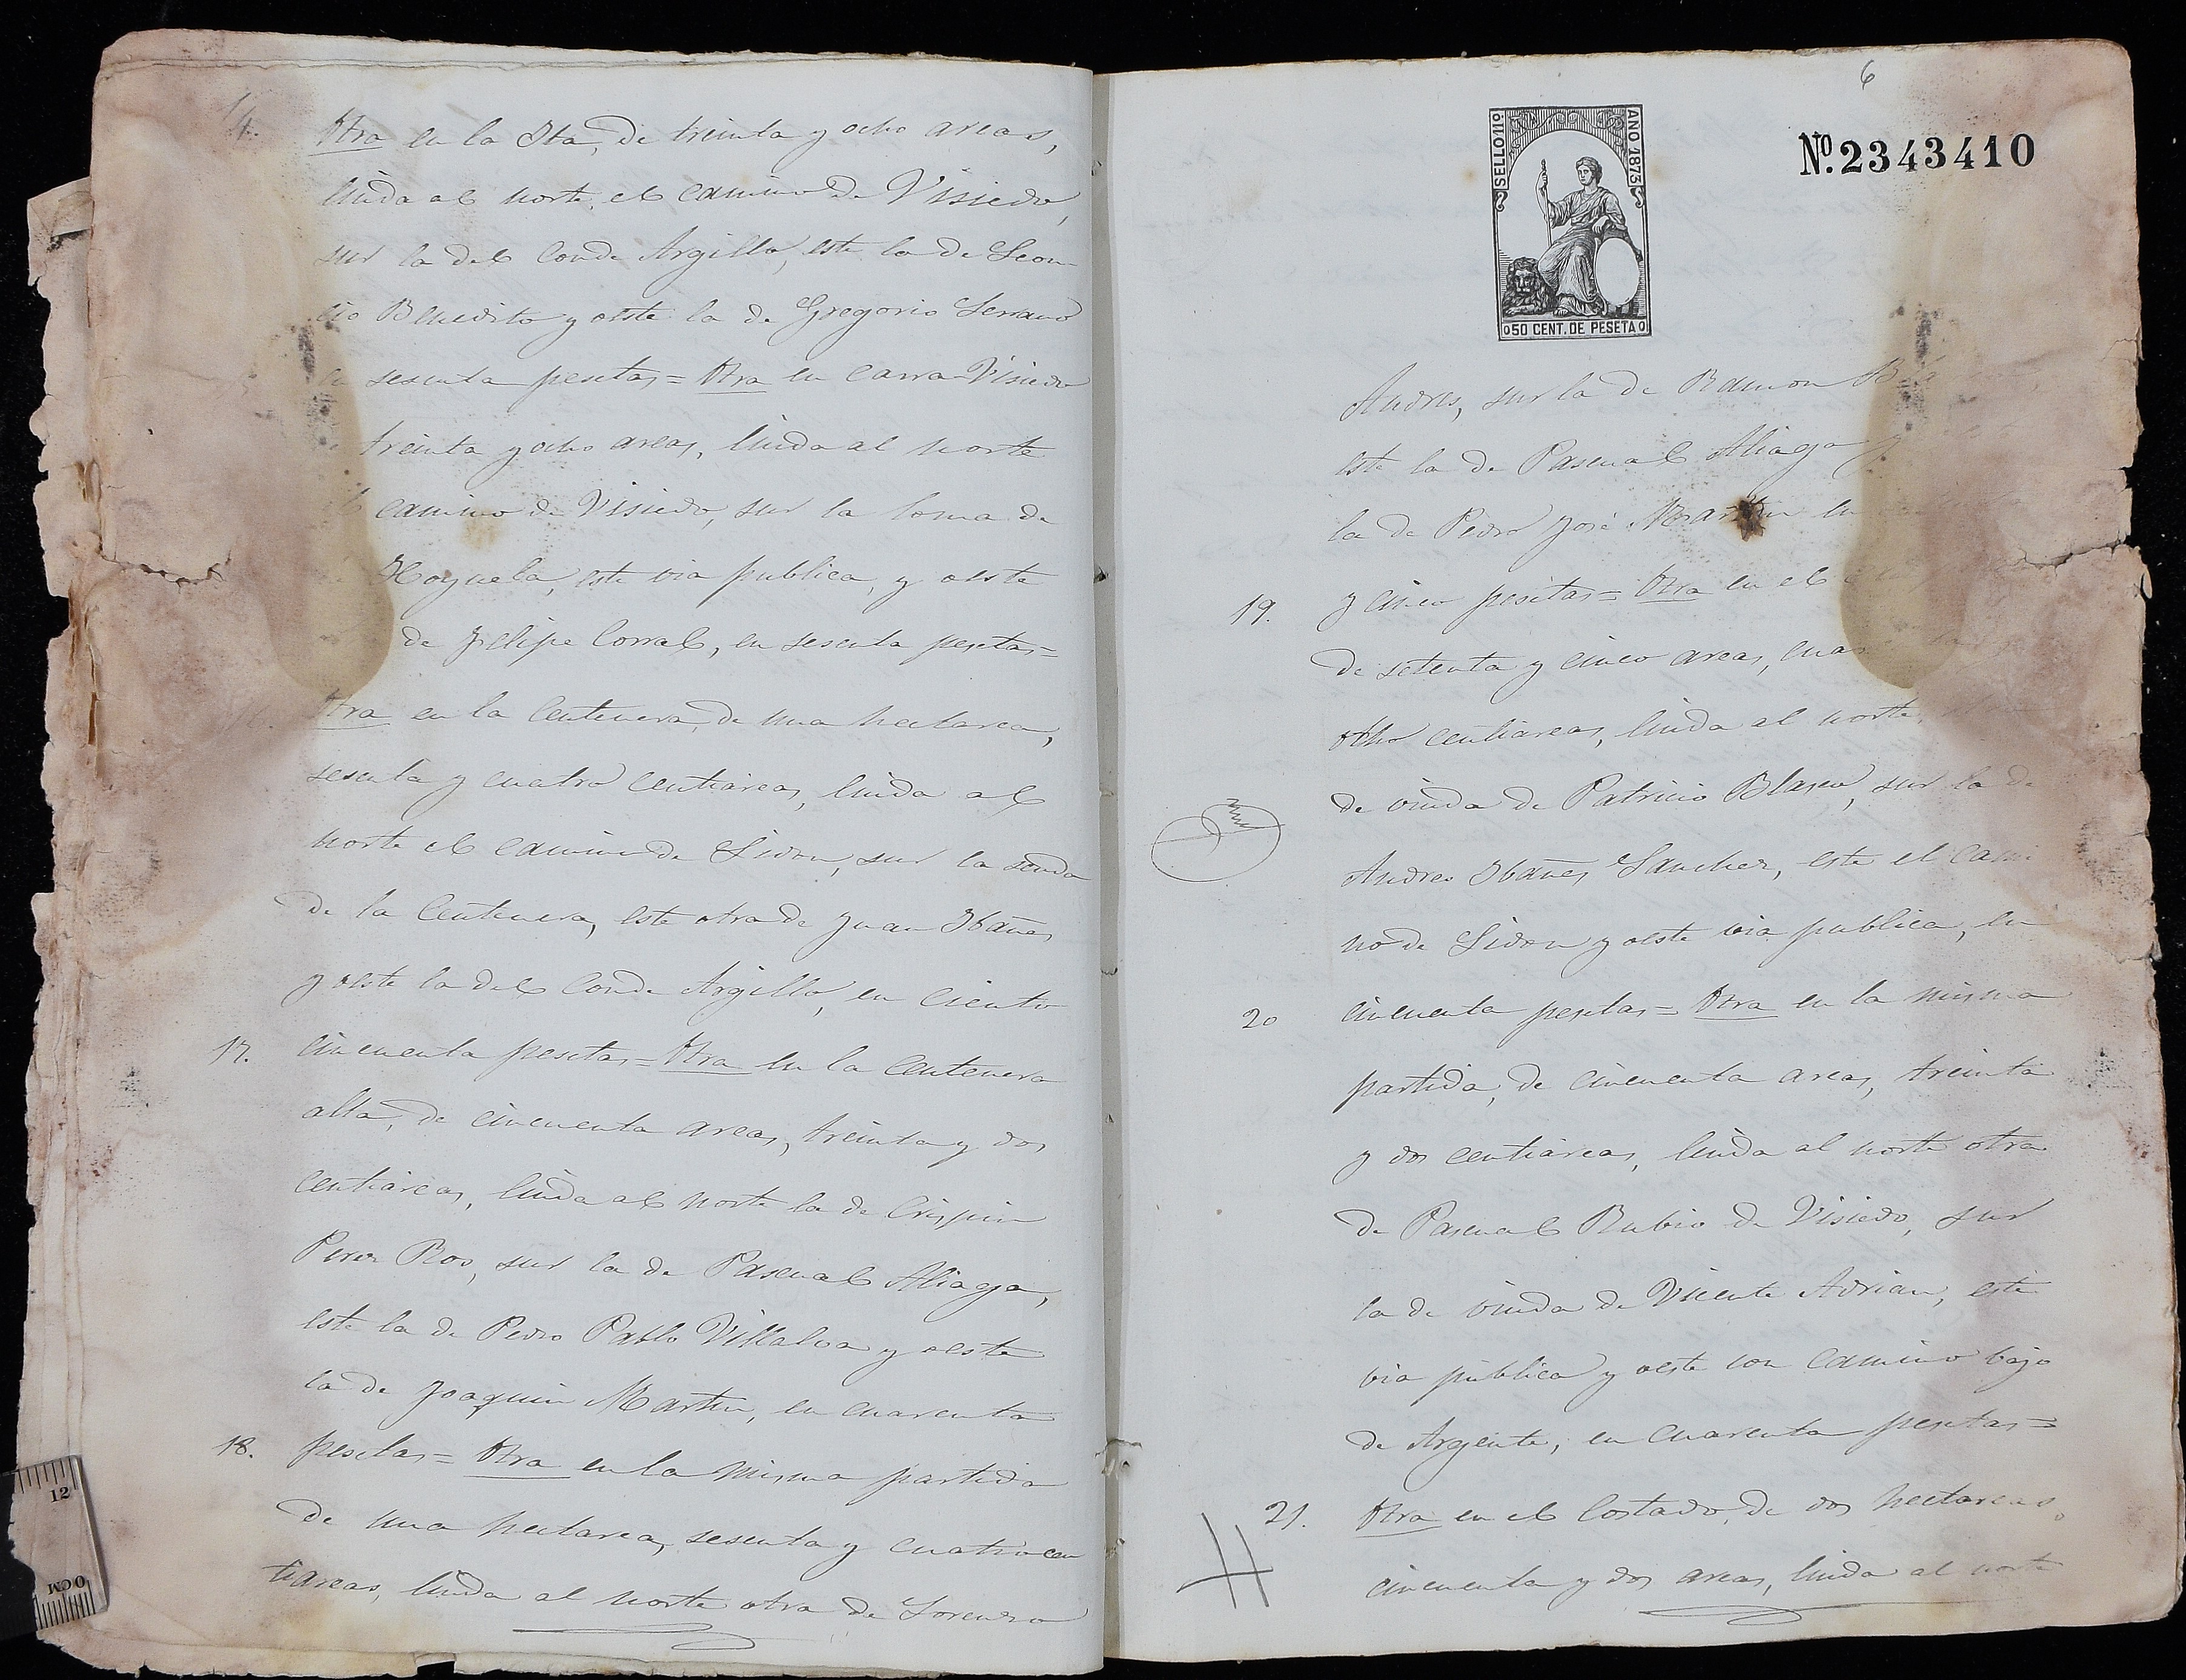 14.
Otra en la Sta, de treinta y ocho areas,
linda al norte, el camino de Visiedo,
sur la del Conde Argillo, este la de Leon-
cio Benedito y oeste la de Gregorio Serrano
en sesenta pesetas = Otra en Carra Visiedo
treinta y ocho areas, linda al norte
camino de Visiedo, sur la loma de
Hoyuela, este via publica, y oeste
de Felipe Corral, en sesenta pesetas =
Otra en la Centenera, de una hectarea,
sesenta y cuatro centiareas, linda al
norte el camino de Lidon, sur la senda
de la Centenera, este otra de Juan Ibañes
y oeste la del Conde Argillo, en ciento
17. cincuenta pesetas = Otra en la Centenera
alta, de cincuenta areas, treinta y dos
centiareas, linda al norte la de Crispin
Perez Ros, sur la de Pascual Aliaga,
este la de Pedro Pablo Villalva y oeste
la de Joaquin Martin, en cuarenta
18. pesetas = Otra en la misma partida
de una hectarea, sesenta y cuatro cen
tiareas, linda al norte otra de Lorenzo
6
SELLO 11º
AÑO 1873
50 CENT. DE PESETA
Nº. 2343410
Andres, sur la de Ramon
este la de Pascual Aliaga y
la de Pedro José Martin en
19. y cinco pesetas = Otra en el
de setenta y cinco areas, cua
ocho centiareas, linda al norte,
de viuda de Patricio Blasco, sur la de
Andres Ibañes Sanchez, este el cami
no de Lidon y oeste via publica, en
20 cincuenta pesetas = Otra en la misma
partida, de cincuenta areas, treinta
y dos centiareas, linda al norte otra
de Pascual Rubio de Visiedo, sur
la de viuda de Vicente Adrian, este
via publica y oeste con camino bajo
de Argente, en cuarenta pesetas =
21. Otra en el Costado, de dos hectareas,
cincuenta y dos areas, linda al norte